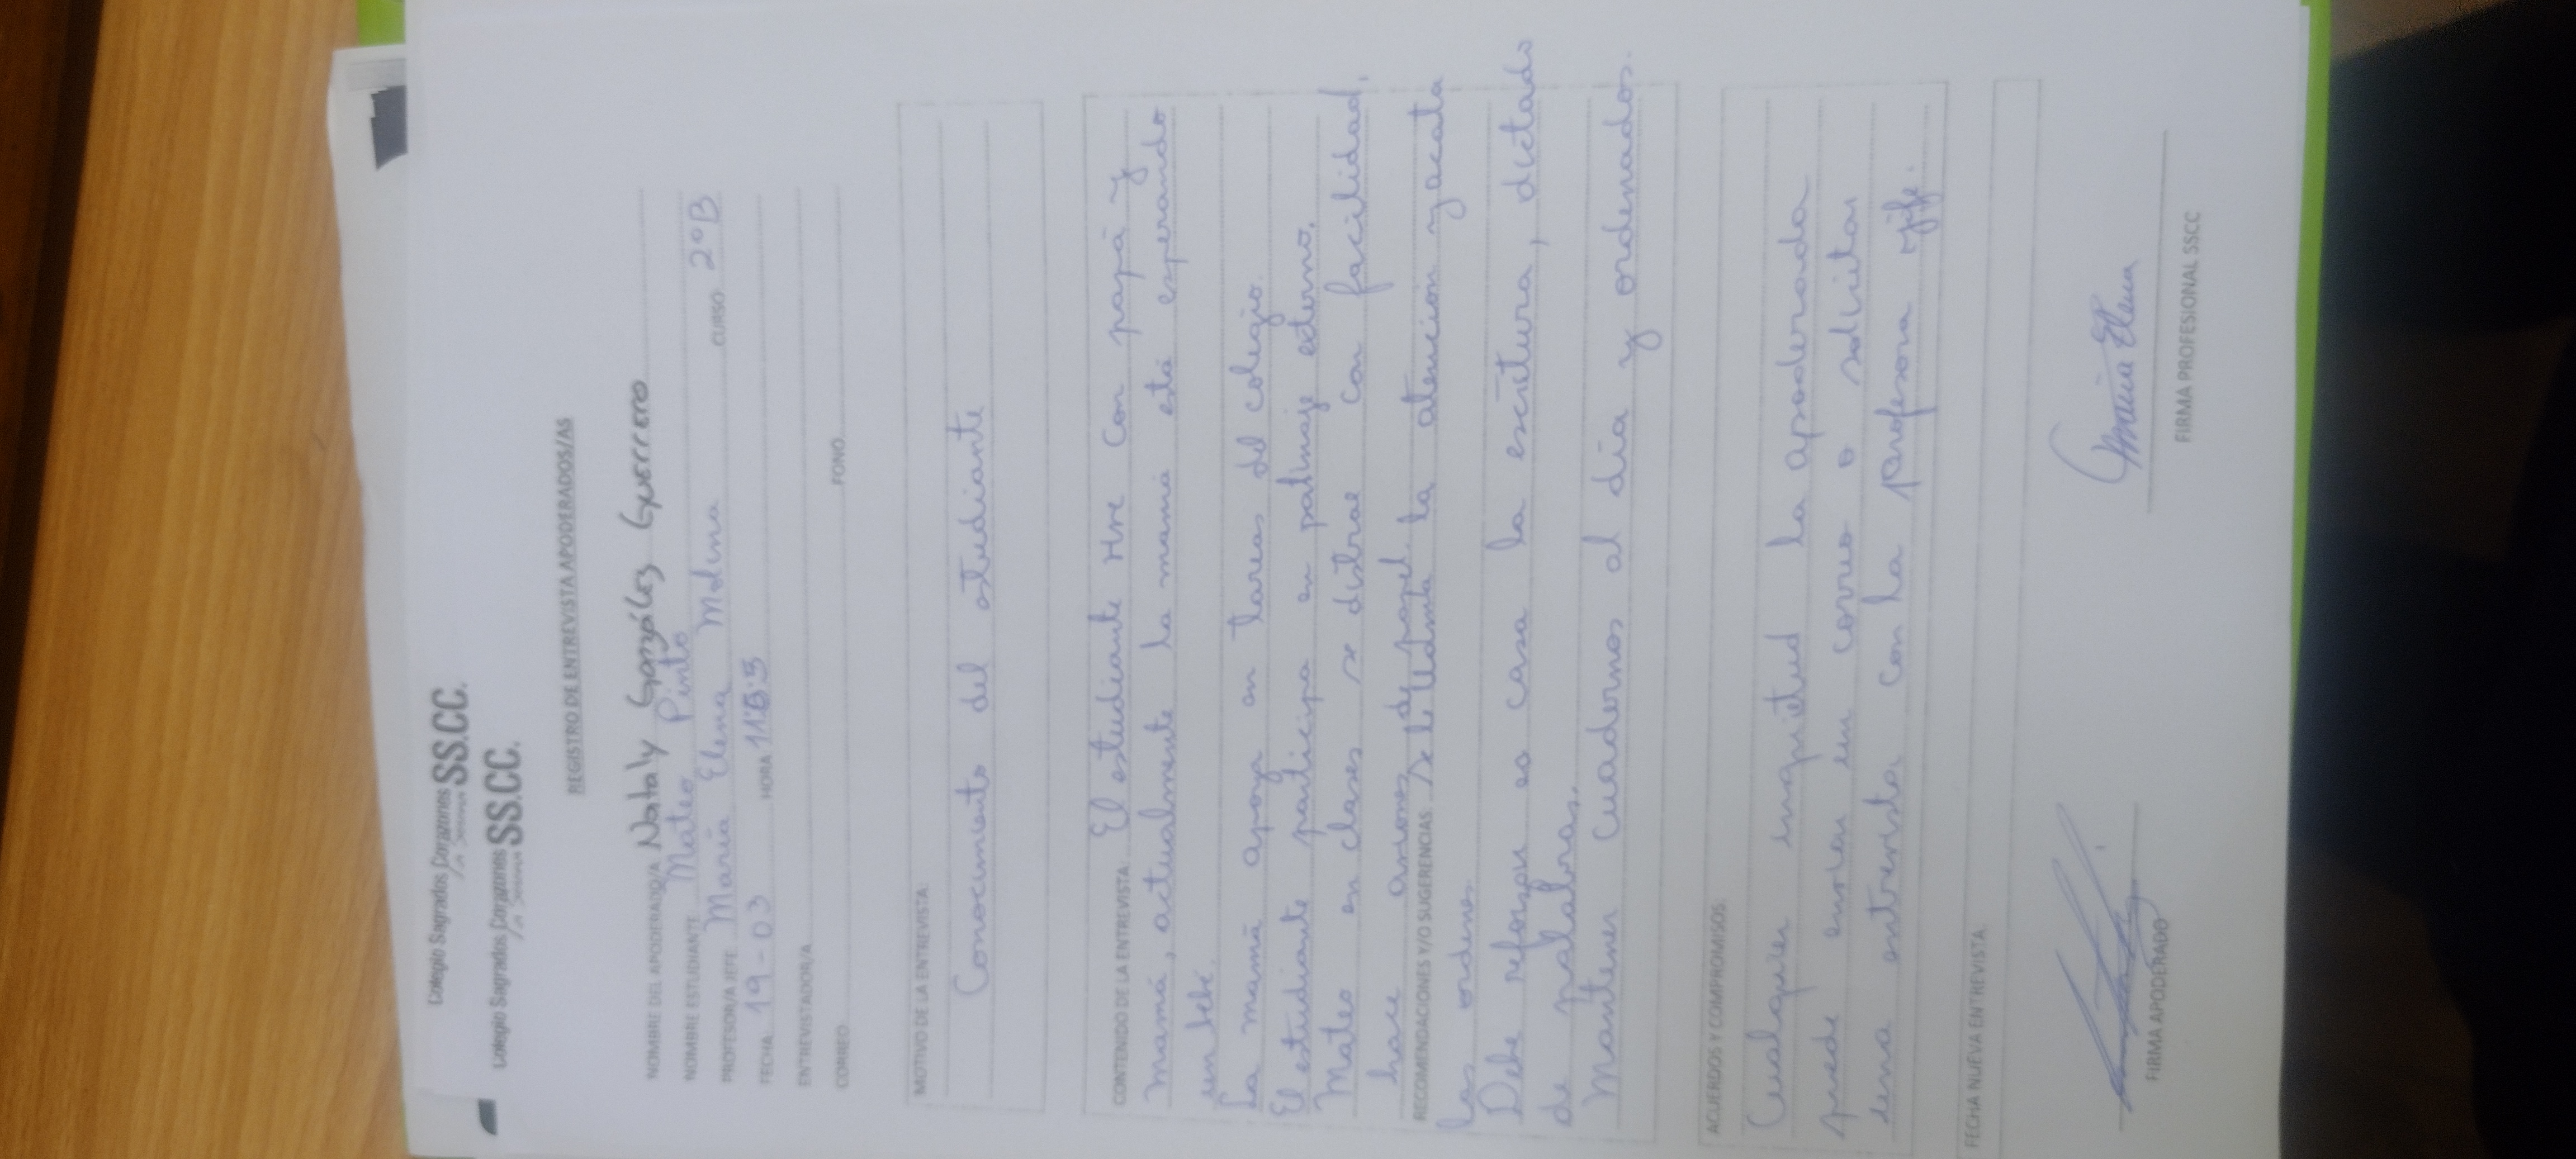 Colegio Sagrados Corazones SS.CC.
Colegio Sagrados Corazones SS.CC.
REGISTRO DE ENTREVISTA APODERADOS/AS
NOMBRE DEL APODERADO/A Nataly González Guerrero
NOMBRE ESTUDIANTE Mateo Pinto CURSO 2°B
PROFESOR/A JEFE María Elena Molina
FECHA 19-03 HORA
ENTREVISTADOR/A
CORREO FONO
MOTIVO DE LA ENTREVISTA
Conocimiento del estudiante
CONTENIDO DE LA ENTREVISTA El estudiante vive con papá y
mamá, actualmente la mamá está esperando
un bebé.
La mamá apoya en tareas del colegio.
El estudiante participa en patinaje externo.
Mateo en clases se distrae con facilidad,
hace aviones de papel
RECOMENDACIONES Y/O SUGERENCIAS se le llama la atención y acata
las ordenes
Debe reforzar en casa la escritura, dictado
de palabras.
Mantener cuadernos al día y ordenados.
ACUERDOS Y COMPROMISOS:
Cualquier inquietud la apoderada
puede enviar un correo o solicitar
una entrevista con la profesora jefe.
FECHA NUEVA ENTREVISTA
FIRMA APODERADO FIRMA PROFESIONAL SSCC